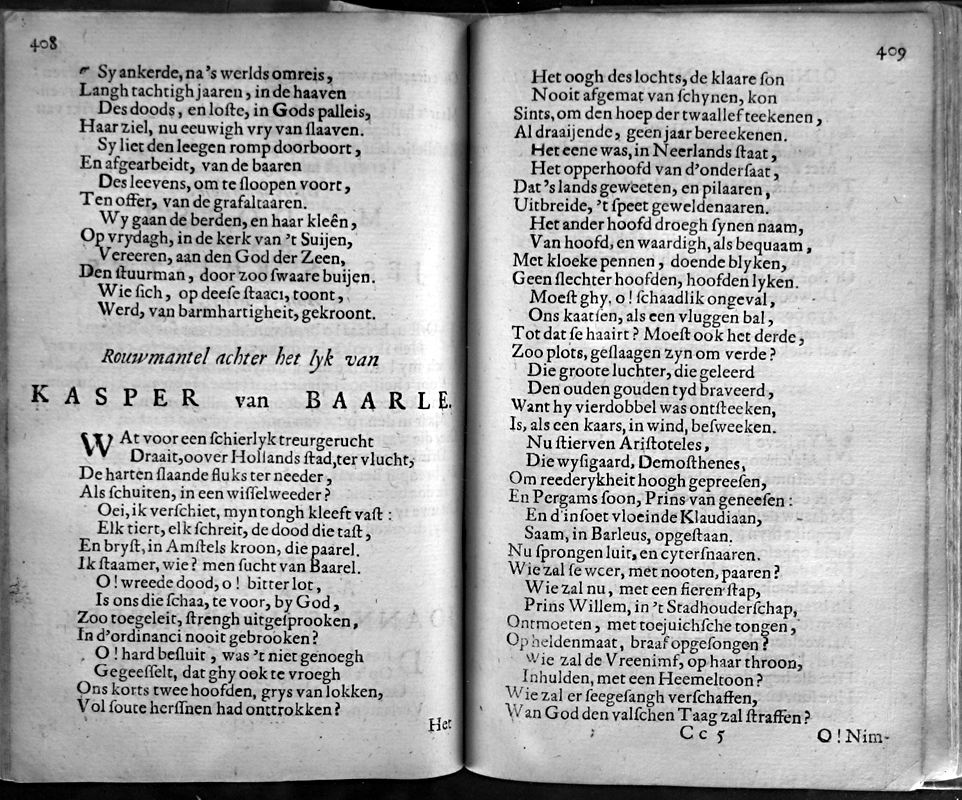 408
Sy ankerde, na 's werlds omreis,
Langh tachtigh jaaren, in de haaven
Des doods, en loste, in Gods palleis,
Haar ziel, nu eeuwigh vry van slaaven.
Sy liet den leegen romp doorboort,
En afgearbeidt, van de baaren
Des leevens, om te sloopen voort,
Ten offer, van de grafaltaaren.
Wy gaan de berden, en haar kleên,
Op vrydagh, in de kerk van 't Suijen,
Vereeren, aan den God der Zeen,
Den stuurman, door zoo swaare buijen.
Wie sich, op deese staaci, toont,
Werd, van barmhartigheit, gekroont.
Rouwmantel achter het lyk van
KASPER van BAARLE.
WAt voor een schierlyk treurgerucht
Draait, oover Hollands stad, ter vlucht,
De harten slaande fluks ter needer,
Als schuiten, in een wisselweeder?
Oei, ik verschiet, myn tongh kleeft vast:
Elk tiert, elk schreit, de dood die tast,
En bryst, in Amstels kroon, die paarel.
Ik staamer, wie? men sucht van Baarel.
O! wreede dood, o! bitter lot,
Is ons die schaa, te voor, by God,
Zoo toegeleit, strengh uitgesprooken,
In d'ordinanci nooit gebrooken?
O! hard besluit, was 't niet genoegh
Gegeesselt, dat ghy ook te vroegh
Ons korts twee hoofden, grys van lokken,
Vol soute herssnen had onttrokken?
Het
409
Het oogh des lochts, de klaare son
Nooit afgemat van schynen, kon
Sints, om den hoep der twaallef teekenen,
Al draaijende, geen jaar bereekenen.
Het eene was, in Neerlands staat,
Het opperhoofd van d'ondersaat,
Dat 's lands geweeten, en pilaaren,
Uitbreide, 't speet geweldenaaren.
Het ander hoofd droegh synen naam,
Van hoofd, en waardigh, als bequaam,
Met kloeke pennen, doende blyken,
Geen slechter hoofden, hoofden lyken.
Moest ghy, o! schaadlik ongeval,
Ons kaatsen, als een vluggen bal,
Tot dat se haairt? Moest ook het derde,
Zoo plots, geslaagen zyn om verde?
Die groote luchter, die geleerd
Den ouden gouden tyd braveerd,
Want hy vierdobbel was ontsteeken,
Is, als een kaars, in wind, besweeken.
Nu stierven Aristoteles,
Die wysigaard, Demosthenes,
Om reederykheit hoogh gepreesen,
En Pergams soon, Prins van geneesen:
En d'insoet vloeinde Klaudiaan,
Saam, in Barleus, opgestaan.
Nu sprongen luit, en cytersnaaren.
Wie zal se weer, met nooten, paaren?
Wie zal nu, met een fieren stap,
Prins Willem, in 't Stadhouderschap,
Ontmoeten, met toejuichsche tongen,
Op heldenmaat, braaf opgesongen?
Wie zal de Vreenimf, op haar throon,
Inhulden, met een Heemeltoon?
Wie zal er seegesangh verschaffen,
Wan God den valschen Taag zal straffen?
Cc 5
O! Nim-